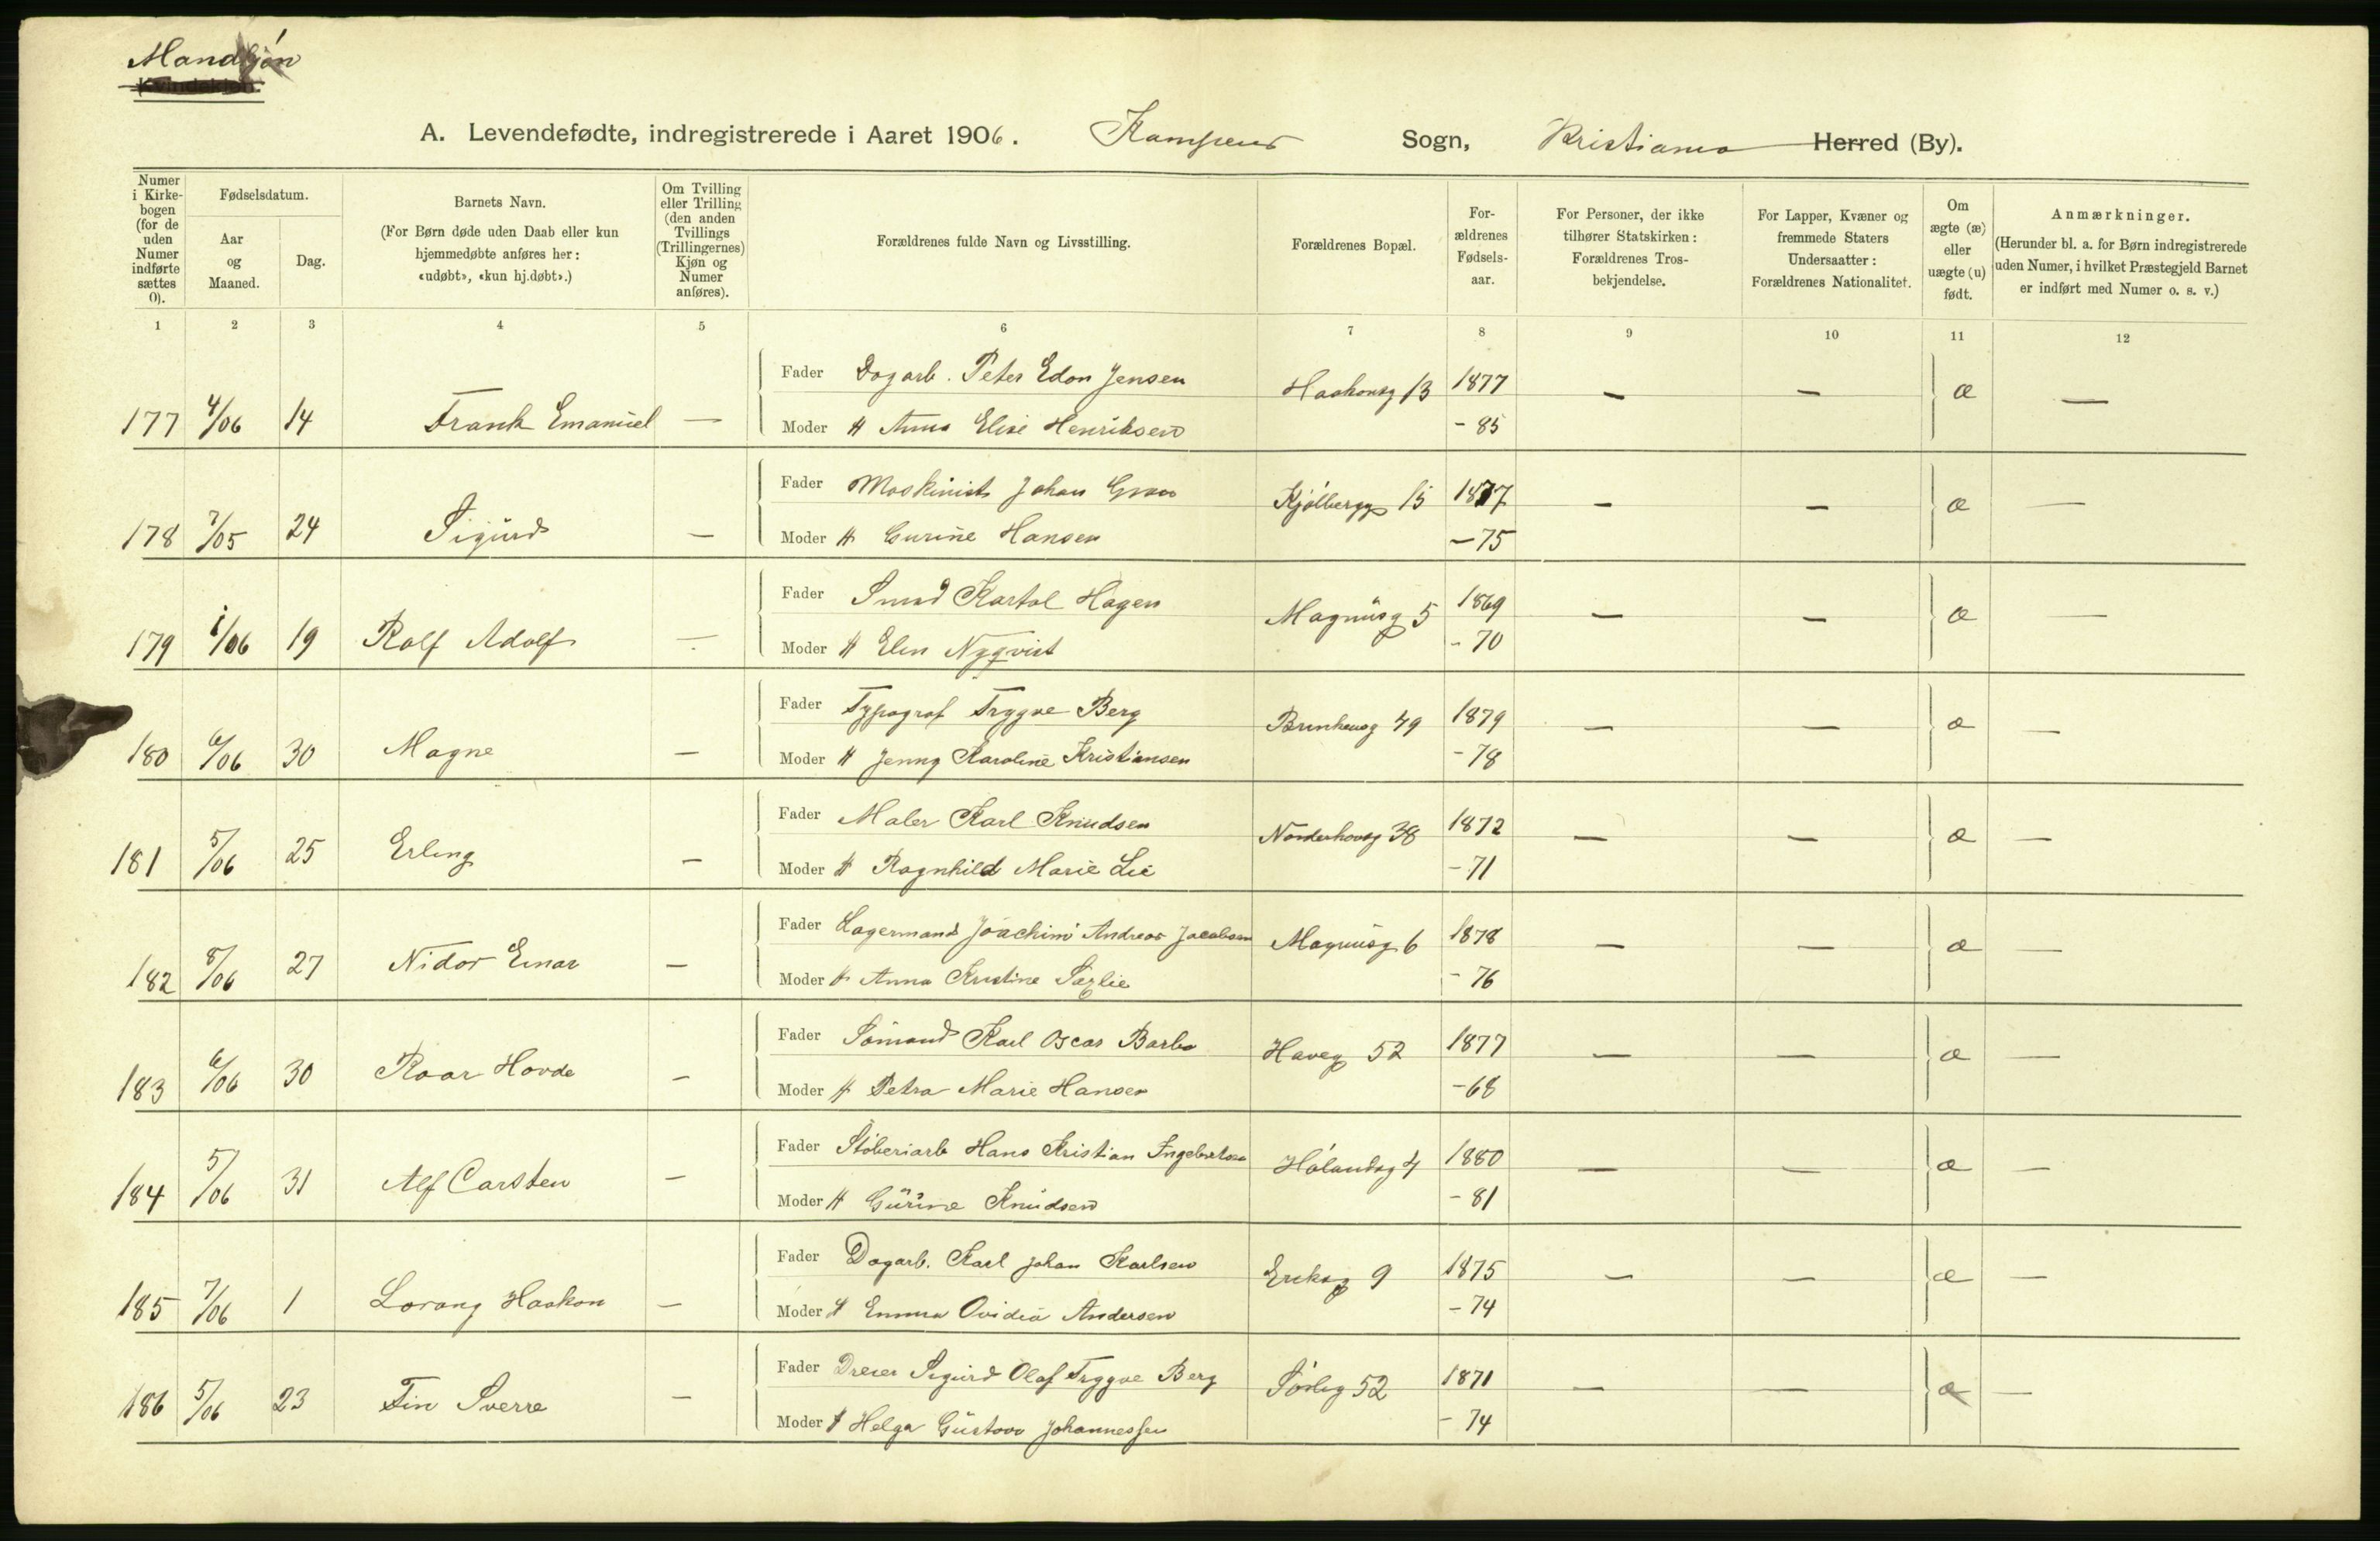 Mandkjøn
Kvindekjøn.
A. Levendefødte, indregistrerede i Aaret 1906. Kampens Sogn, Kristiania Herred (By).
Numer i Kirkebogen (for de uden Numer indførte sættes 0).
Fødselsdatum.
Aar og Maaned.
Dag.
Barnets Navn.
(For Børn døde uden Daab eller kun hjemmedøbte anføres her: «udøbt», «kun hj.døbt».)
Om Tvilling eller Trilling (den anden Tvillings (Trillingernes) Kjøn og Numer anføres).
Forældrenes fulde Navn og Livsstilling.
Forældrenes Bopæl.
Forældrenes Fødselsaar.
For Personer, der ikke tilhører Statskirken: Forældrenes Trosbekjendelse.
For Lapper, Kvæner og fremmede Staters Undersaatter: Forældrenes Nationalitet.
Om ægte (æ) eller uægte (u) født.
Anmærkninger.
(Herunder bl. a. for Børn indregistrerede uden Numer, i hvilket Præstegjeld Barnet er indført med Numer o. s. v.)
1 2 3 4 5 6 7 8 9 10 11 12
Fader Dagarb. Peter Edon Jensen Haakonsg 13 1877 — — æ —
177 4/06 14 Frank Emanuel —
Moder H Anna Elise Henriksen - 85
Fader Maskinist Johan Gran Kjølbergg 15 1877 — — æ —
178 7/05 24 Sigurd —
Moder H Gurine Hansen - 75
Fader Smed Kartol Hagen Magnusg 5 1869 — — æ —
179 1/06 19 Rolf Adolf —
Moder H Elen Nyqvist - 70
Fader Typograf Trygve Berg Brinkensg 49 1879 — — æ —
180 6/06 30 Magne —
Moder H Jenny Karoline Kristiansen - 78
Fader Maler Karl Knudsen Norderhovsg 38 1872 — — æ —
181 5/06 25 Erling —
Moder H Ragnhild Marie Lie - 71
Fader Lagermand Joachim Andreas Jacobsen Magnusg 6 1878 — — æ —
182 8/06 27 Nidar Einar —
Moder H Anna Kristine - 76
Fader Sømand Karl Oscar Barbo Haveg 52 1877 — — æ —
183 6/06 30 Roar Hovde —
Moder H Petra Marie Hansen - 68
Fader Støberiarb Hans Kristian Ingebretsen Hølandsg 4 1880 — — æ —
184 5/06 31 Alf Carsten —
Moder H Gurine Knudsen - 81
Fader Dagarb. Karl Johan Karlsen Eriksg 9 1875 — — æ —
185 7/06 1 Lorang Haakon —
Moder H Emma Ovidia Andersen - 74
Fader Dreier Sigurd Olaf Trygve Berg Sørlig 52 1871 — — æ —
186 5/06 23 Fin Sverre —
Moder H Helga Gustava Johannessen - 74